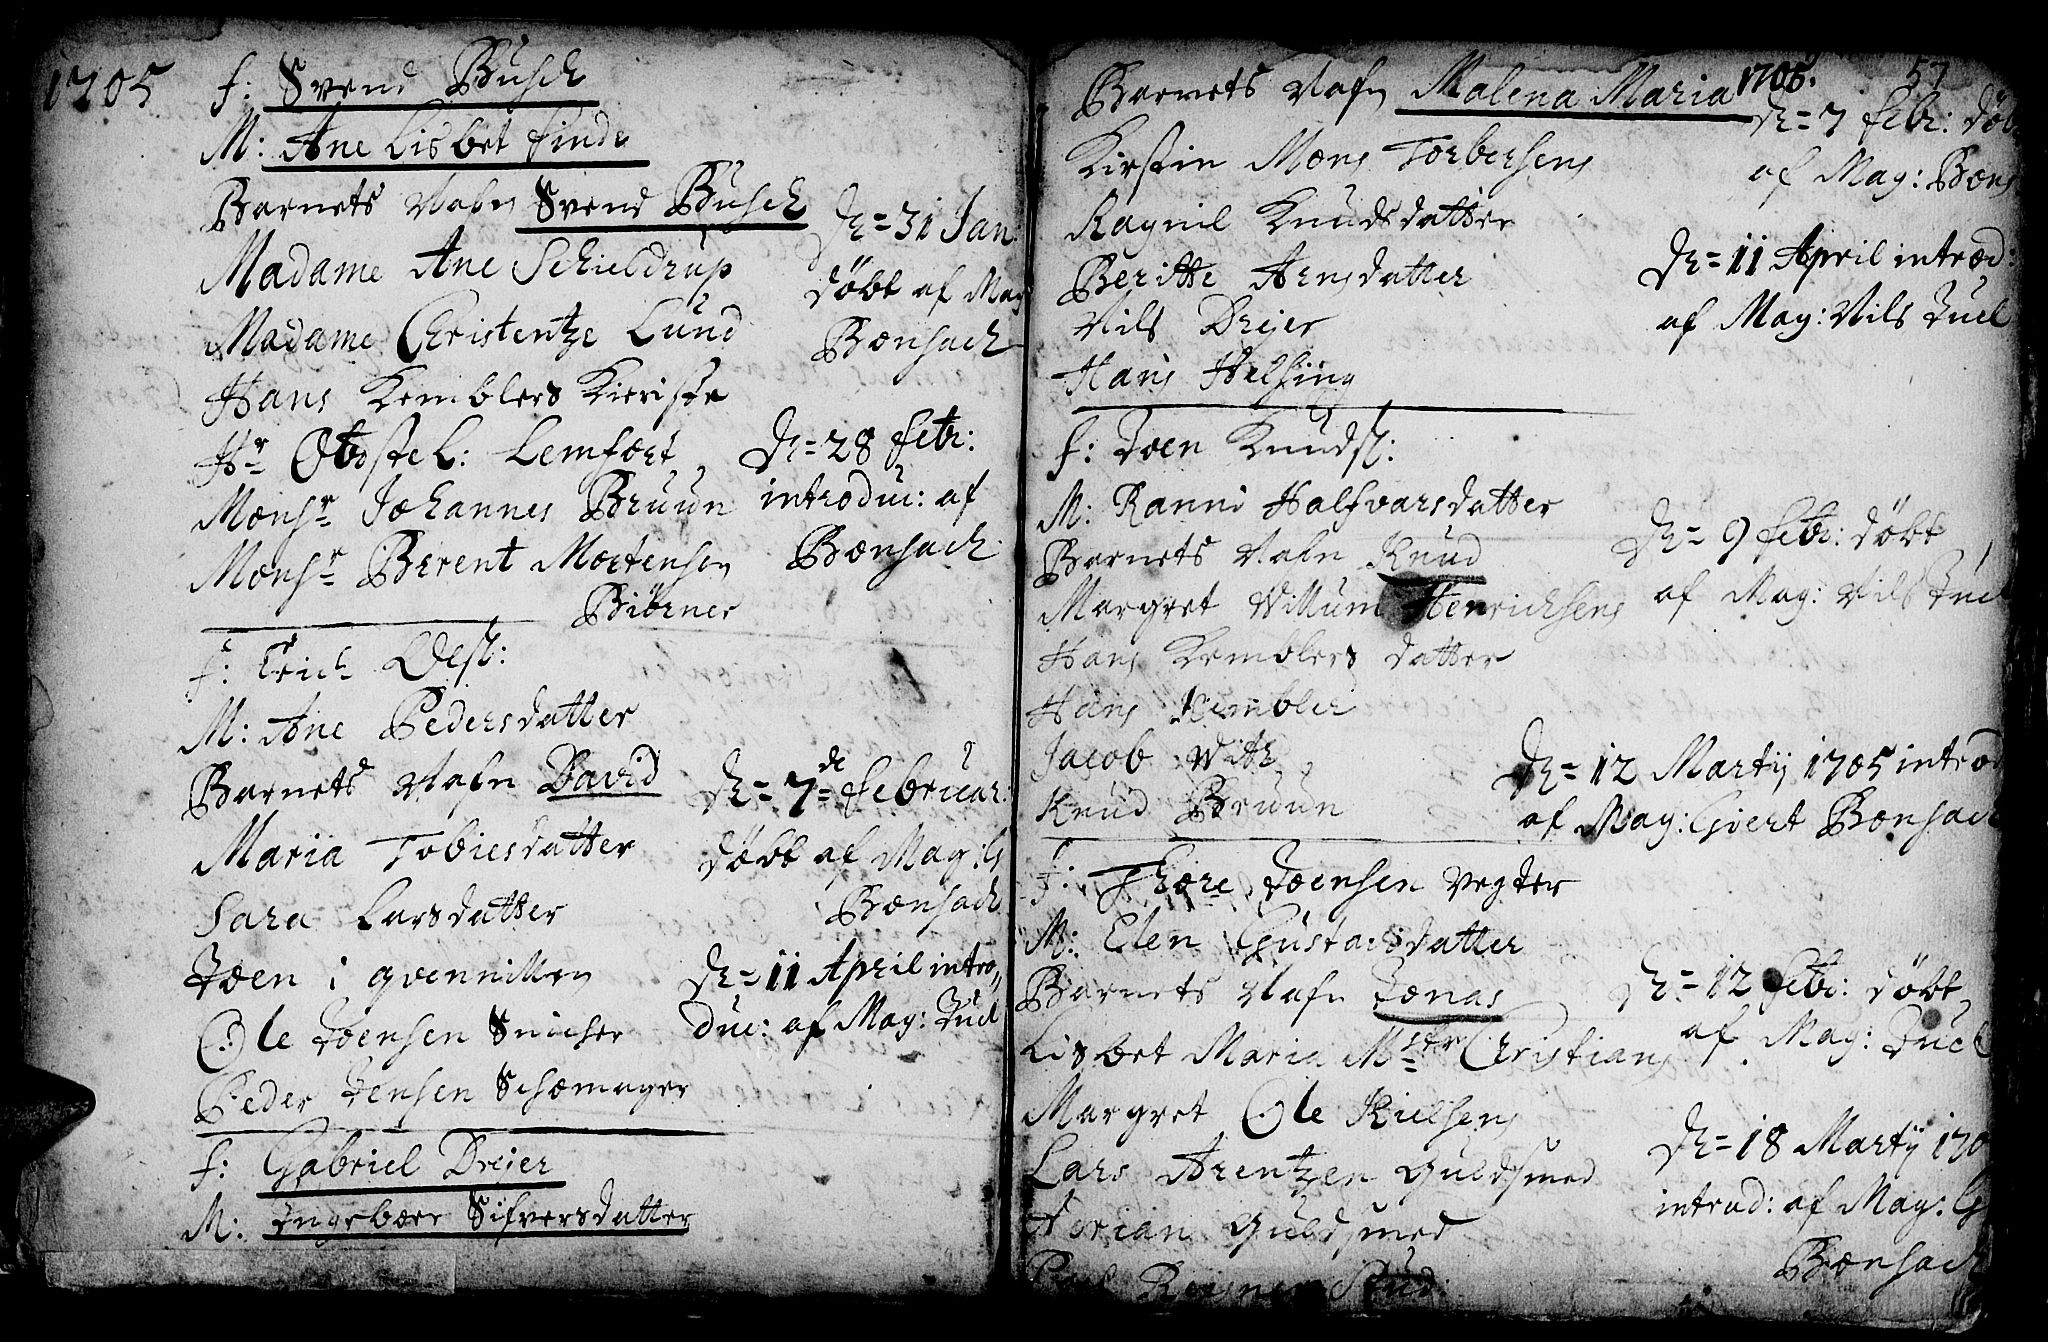 1705
F: Svend Busch
M: Ane Lisbet Finde
Barnets Nafn Svend Busch
Madame Ane Schieldrup
Madame Christentze Lund
Hans Kemblers Kieriste
Hr Obostel: Lemfort
Monsr Johannes Bruun
Monsr Berent Mortensen
Biörner
D= 31 Jan:
döbt af Mag
Bonsach
D= 28 Febr:
introduc: af
Bonsach
F: Erich Oles:
M: Ane Pedersdatter
Barnets Nafn David
Maria Tobiesdatter
Sara Larsdatter
Joen i qvennillen
Ole Joensen Snicher
Peder Jensen Schomager
D= 7de Februar:
döbt af Mag: G
Bonsach
D= 11 April intro,
duc: af Mag: Juel
F: Gabriel Dreier
M: Ingebor Sifversdatter
1705. 57
Barnets Nafn Malena Maria
Kirstin Mons Torbersens
Ragnil Knudsdatter
Beritte Arnsdatter
Nils Dreier
Hans Helsing
D= 7 Febr: döb
af Mag: Bons
D= 11 April introd:
af Mag: Nils Juel
F: Joen Knuds:
M: Ranni Halfvarsdatter
Barnets Nafn Knud
Margret Villum Henrichsens
Hans Kemblers datter
Hans Kembler
Jacob Vith
Knud Bruun
D= 9 Febr: döbt
af Mag: Nils Juel
D= 12 Martij 1705 introd
af Mag: Gvert Bonsach
F: Thore Joensen vegter
M: Elen Gustavsdatter
Barnets Nafn Jonas
Lisbet Maria Mster Christians
Margret Ole Nielsens
Lars Arentzen guldsmed
Dorian guldsmed
Reisner Stud:
D= 12 Febr: döbt
af Mag: Juel
D= 18 Martij 170
introd: af Mag: G
Bonsach